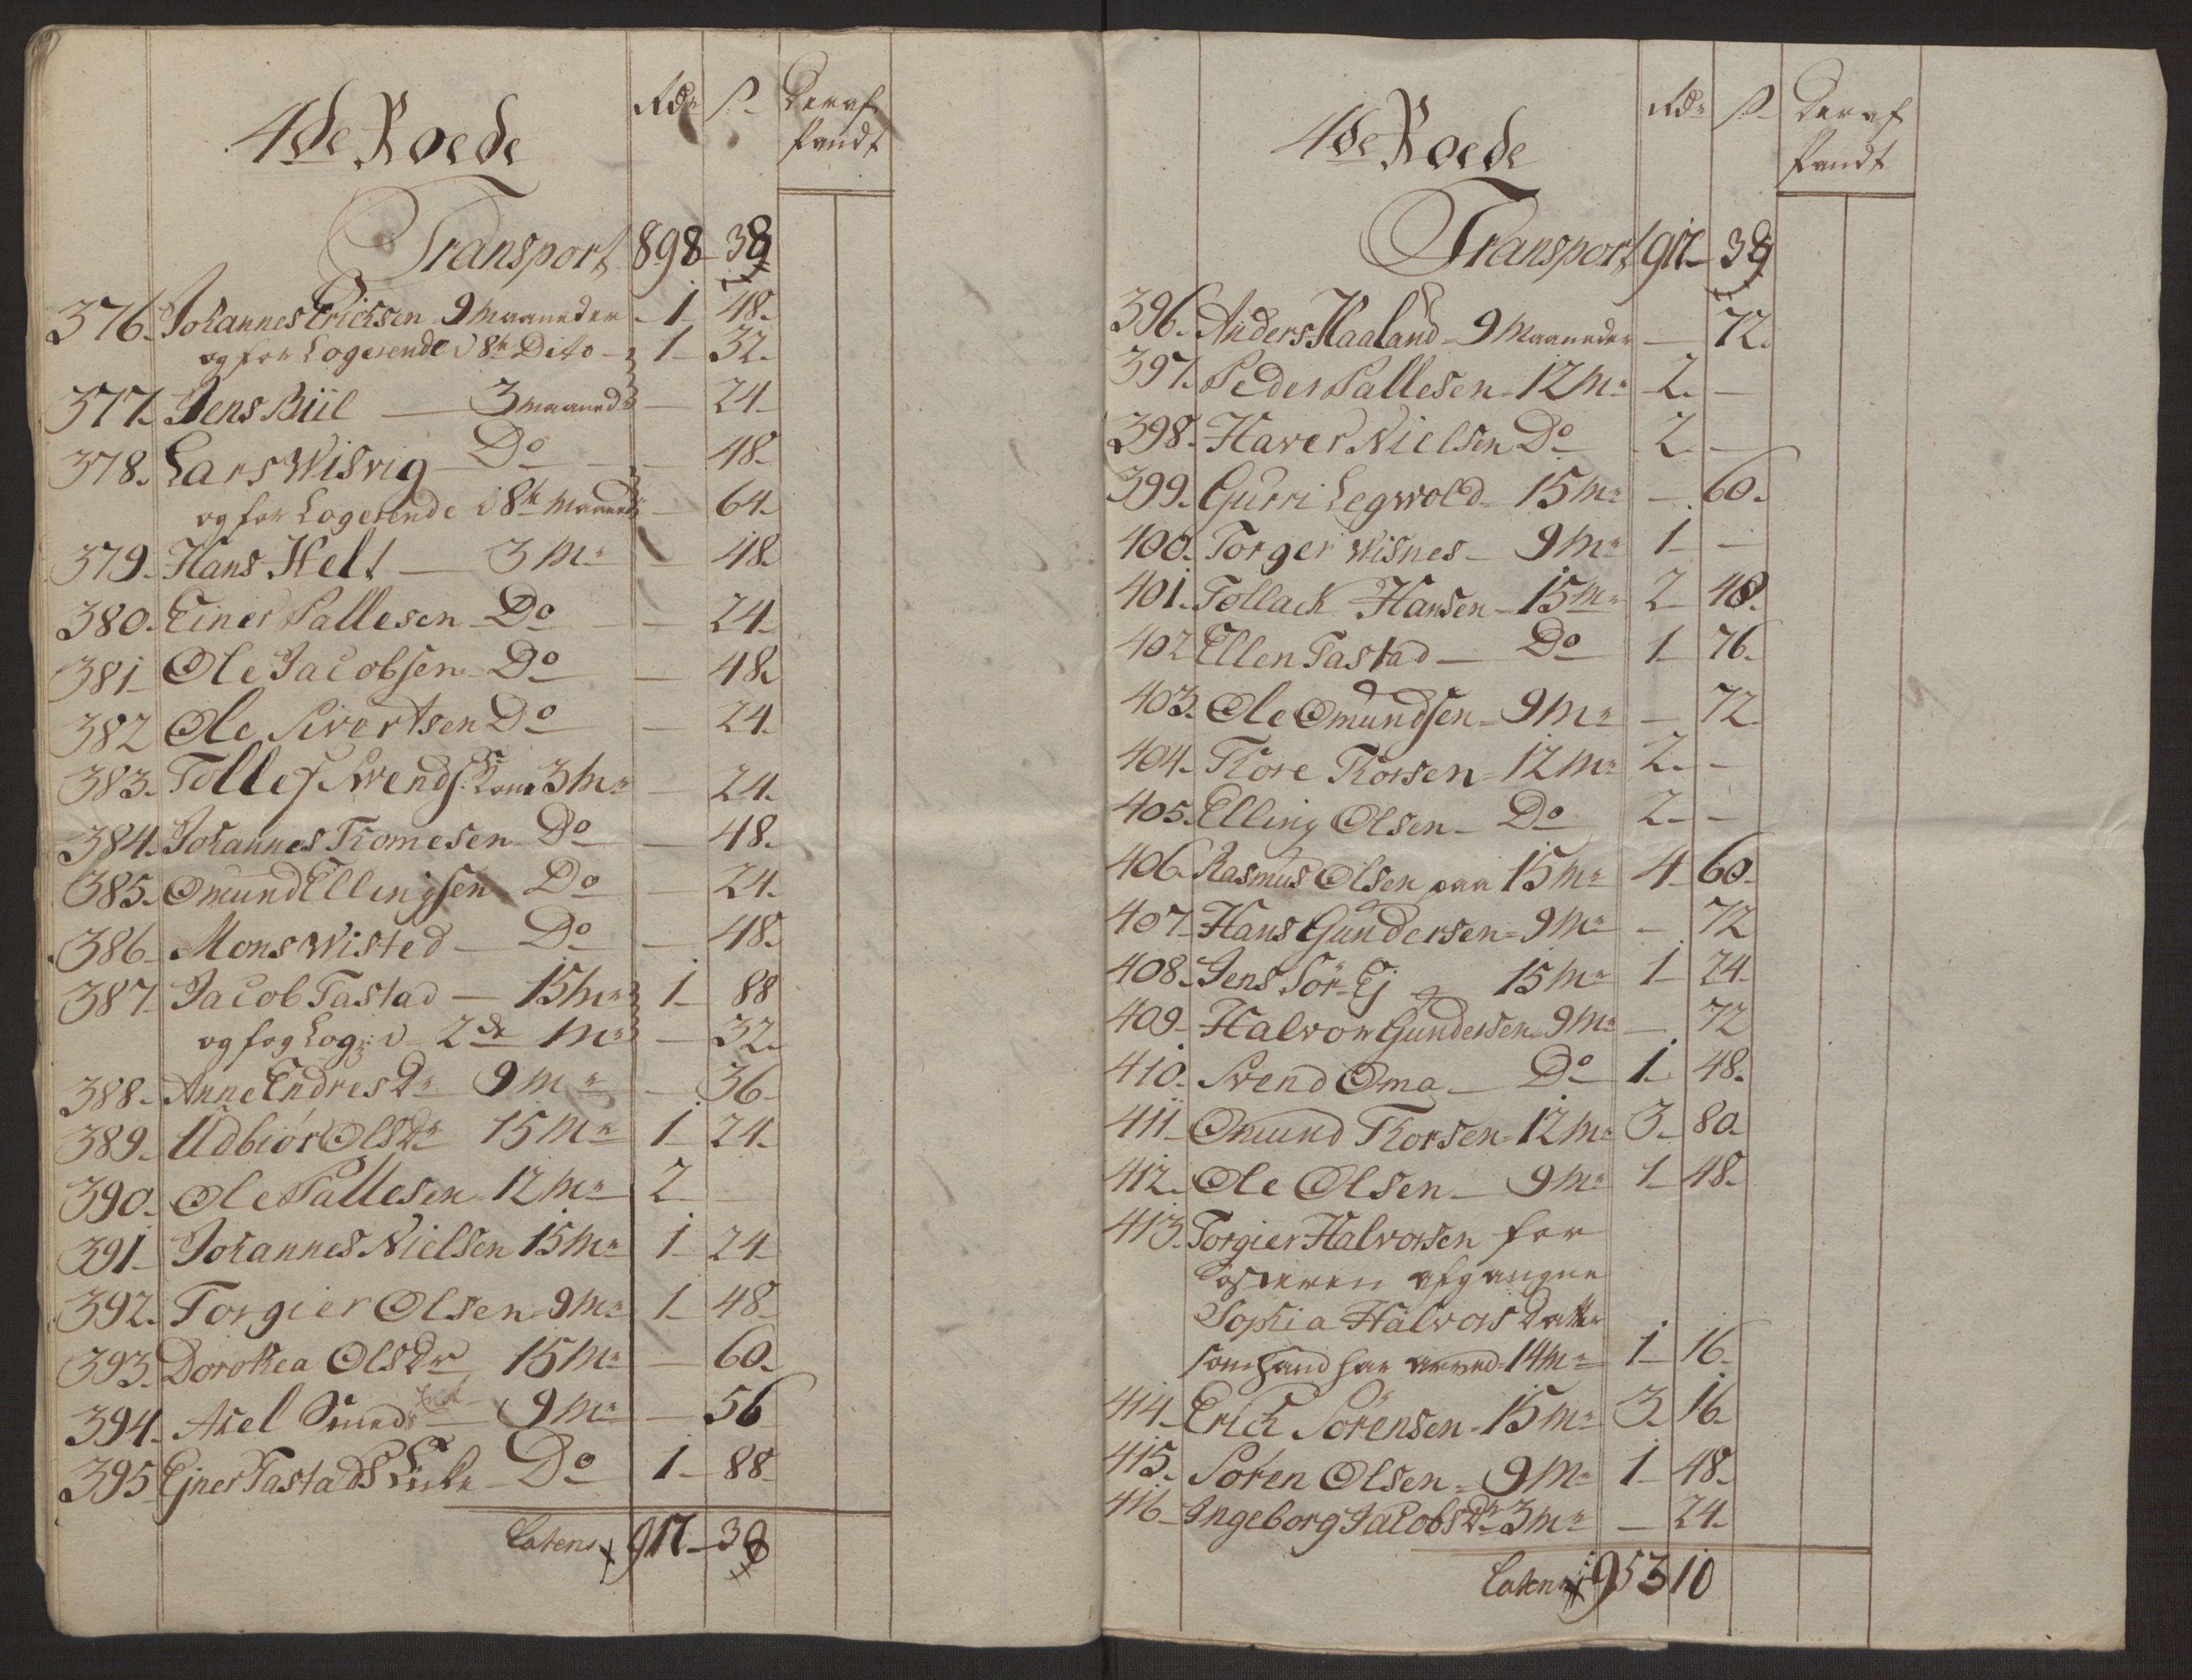 4de Roede
Rdr ß Deraf
Pandt
Transport 898 38
376. Johannes Ericksen 9 Maaneder 1 48.
og for Logerende i 8te Dito 1 32.
377. Jens Biil 3 maaneds 24
378. Lars Wisvig Do 48
og for Logerende i 8te Maaneds 64
379. Hans Helt 3 Mr 48
380. Einer Pallesen Do 24
381 Ole Jacobsen Do 48
382 Ole Sivertsen Do 24
383. Tollef Svends. Kone 3 Mr 24
384. Johannes Thomesen Do 48
385. Omund Ellingsen Do 24
386. Mons Wisted Do 48
387 Jacob Tastad 15 Mr 1 88
og for Log: i 2de Mr 32
388. Anne Endres Dr 9 Mr 36
389. Udbiør Ols Dr 15 Mr 1 24
390. Ole Pallesen 12 Mr 2
391 Johannes Nielsen 15 Mr 1 24
392. Torgier Olsen 9 Mr 1 48
393. Dorothea Ols Dr 15 Mr 60.
394. Axel Smeds 9 Mr 56
395 Ejner Tastads Enke Do 1 88
Latens 917 38
4de Roede
Rdr ß Deraf
Pandt
Transport 917 38
396. Anders Haaland 9 Maaneder 72.
397. Peder Pallesen 12 Mr 2
398. Haver Nielsen Do 2
399. Gurri Legwold 15 Mr 60.
400. Torger Wisnes 9 Mr 1
401. Tollack Hansen 15 Mr 2 48.
402 Ellen Tastad Do 1 76
403. Ole Omundsen 9 Mr 72
404. Thore Thorsen 12 Mr 2
405. Elling Olsen Do 2
406 Rasmus Olsen paa 15 Mr 4 60
407 Hans Gundersen 9 Mr 72
408. Jens Sör-Ej 15 Mr 1 24
409 Halvor Gundersen 9 Mr 72
410. Svend Oma Do 1 48.
411 Omund Thorsen 12 Mr 3 80
412. Ole Olsen 9 Mr 1 48
413. Torgier Halvorsen for
Søsteren afgangne
Sophia Halvors Datter
som hand har arved 14 Mr 1 16
414 Erich Sörensen 15 Mr 3 16
415. Sören Olsen 9 Mr 1 48
416 Ingeborg Jacobs Dr 3 Mr 24
Latens 953 10